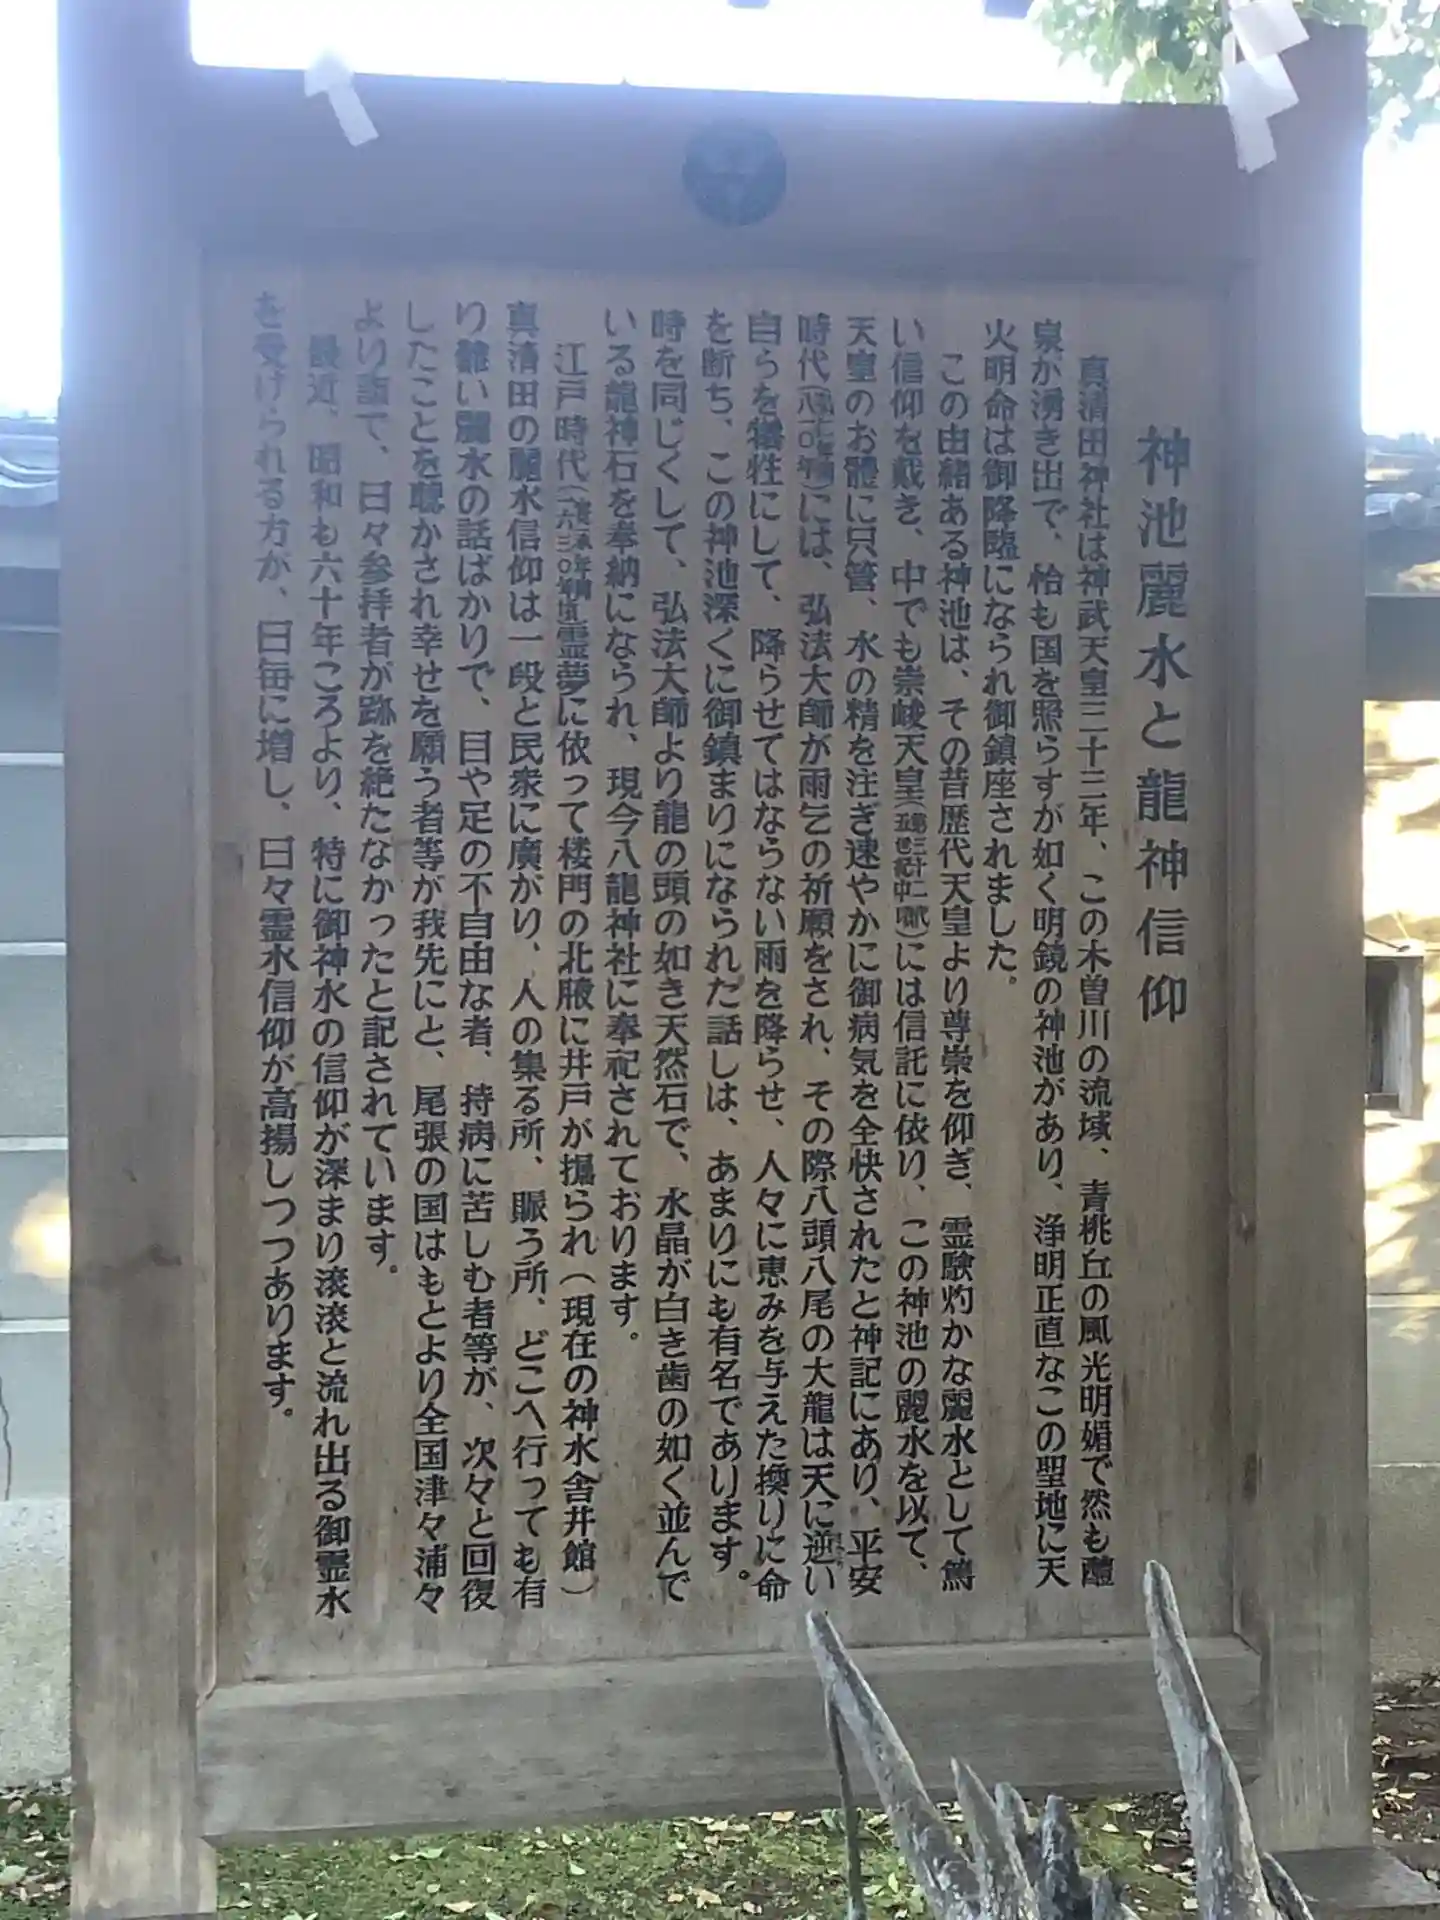 神池麗水と龍神信仰
真清田神社は神武天皇三十三年、この木曽川の流域、青桃丘の風光明媚で然も醴
泉が湧き出で、恰も国を照らすが如く明鏡の神池があり、浄明正直なこの聖地に天
火明命は御降臨になられ御鎮座されました。
この由緒ある神池は、その昔歴代天皇より尊崇を仰ぎ、霊験灼かな麗水として篤
い信仰を戴き、中でも崇峻天皇(第三十二代 五世紀中頃)には信託に依り、この神池の麗水を以て、
天皇のお體に只管、水の精を注ぎ速やかに御病気を全快されたと神記にあり、平安
時代(八一〇年)には、弘法大師が雨乞の祈願をされ、その際八頭八尾の大龍は天に逆い
自らを犠牲にして、降らせてはならない雨を降らせ、人々に恵みを与えた換りに命
を断ち、この神池深くに御鎮まりになられた話しは、あまりにも有名であります。
時を同じくして、弘法大師より龍の頭の如き天然石で、水晶が白き歯の如く並んで
いる龍神石を奉納になられ、現今八龍神社に奉祀されております。
江戸時代(一六三〇年)霊夢に依って楼門の北腋に井戸が掘られ(現在の神水舎井館)
真清田の麗水信仰は一段と民衆に廣がり、人の集る所、賑ろ所、どこへ行っても有
り難い麗水の話ばかりで、目や足の不自由な者、持病に苦しむ者等が、次々と回復
したことを聴かされ幸せを願う者等が我先にと、尾張の国はもとより全国津々浦々
より詣で、日々参拝者が跡を絶たなかったと記されています。
最近、昭和も六十年ころより、特に御神水の信仰が深まり滾滾と流れ出る御霊水
を受けられる方が、日毎に増し、日々霊水信仰が高揚しつつあります。